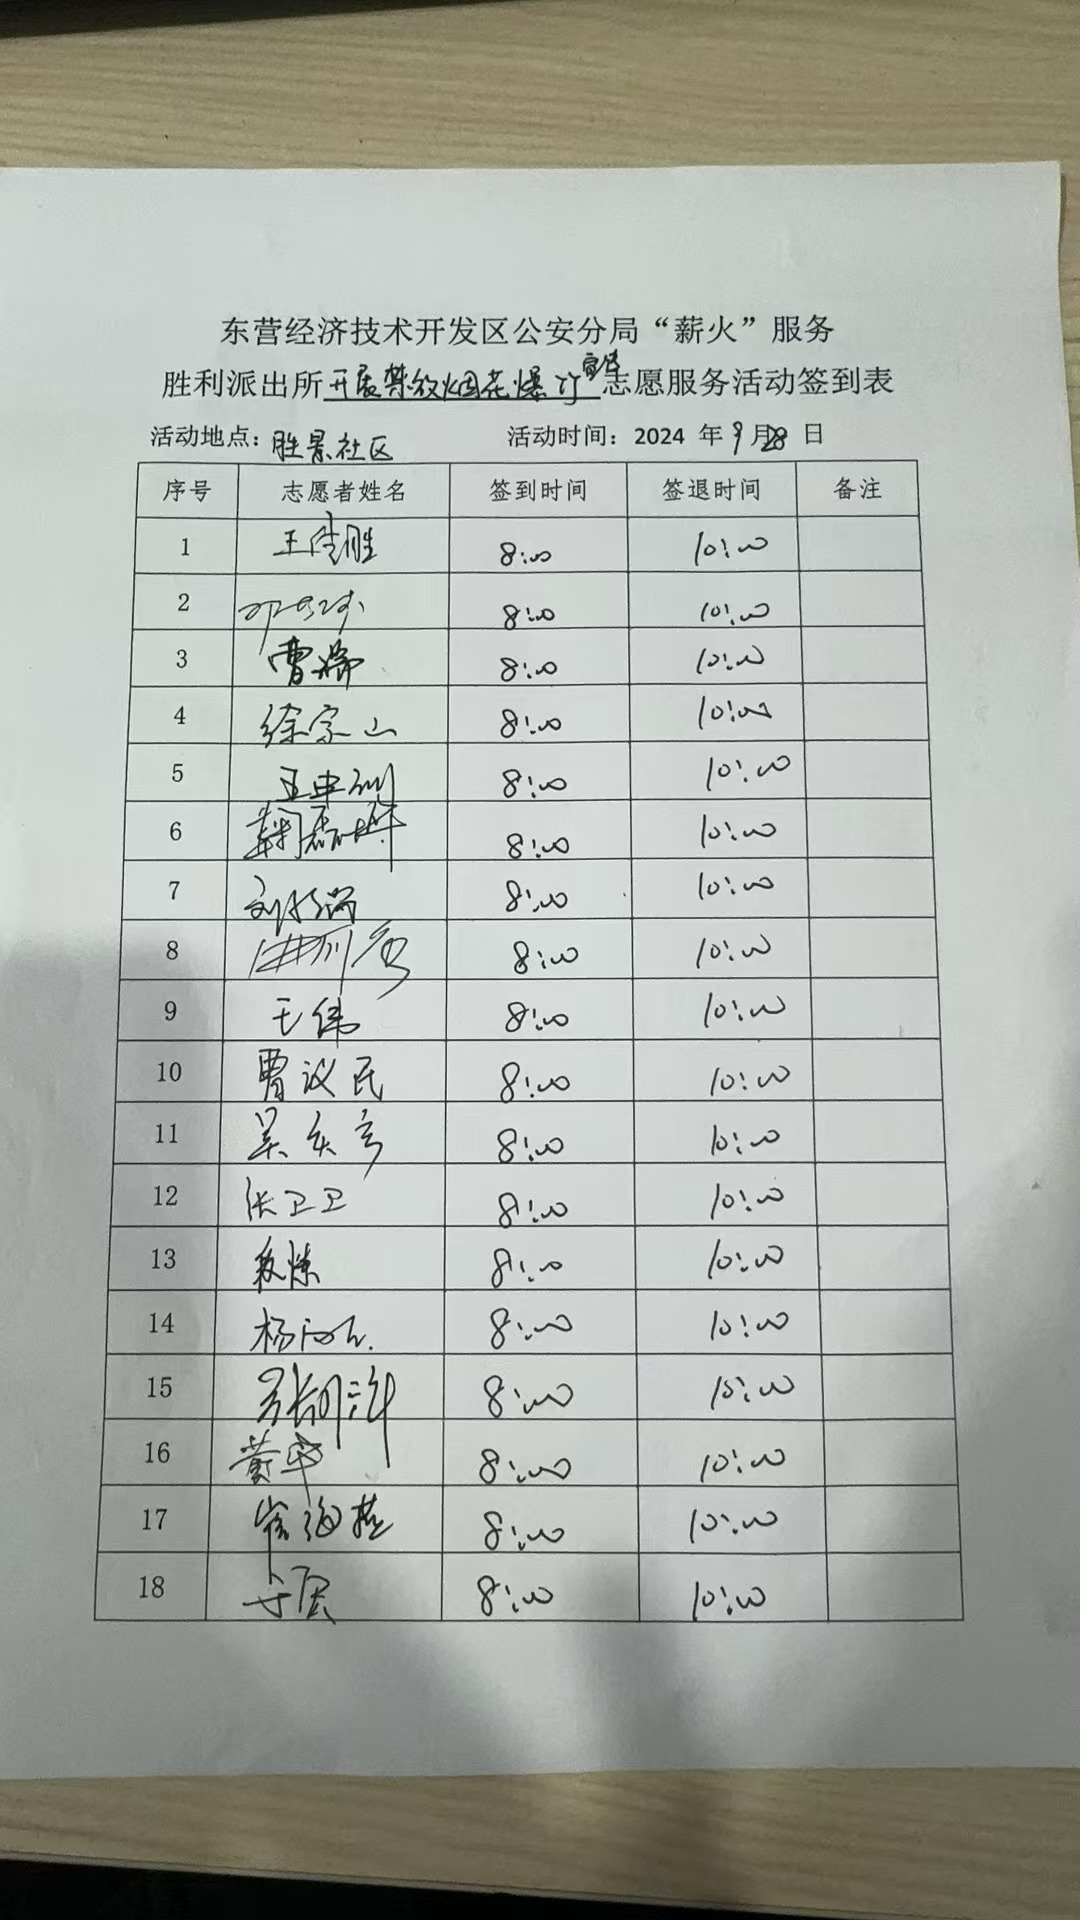 东营经济技术开发区公安分局“薪火”服务
胜利派出所开展禁放烟花爆竹宣传志愿服务活动签到表
活动地点：胜景社区 活动时间：2024 年 9月28 日
序号 志愿者姓名 签到时间 签退时间 备注
1 王 胜 8:00 10:00
2 8:00 10:00
3 曹瑞 8:00 10:00
4 徐家山 8:00 10:00
5 王申 8:00 10:00
6 鞠磊 8:00 10:00
7 刘 8:00 10:00
8 8:00 10:00
9 王伟 8:00 10:00
10 曹议民 8:00 10:00
11 吴 8:00 10:00
12 张卫卫 8:00 10:00
13 8:00 10:00
14 杨 8:00 10:00
15 8:00 10:00
16 黄 8:00 10:00
17 崔海燕 8:00 10:00
18 8:00 10:00